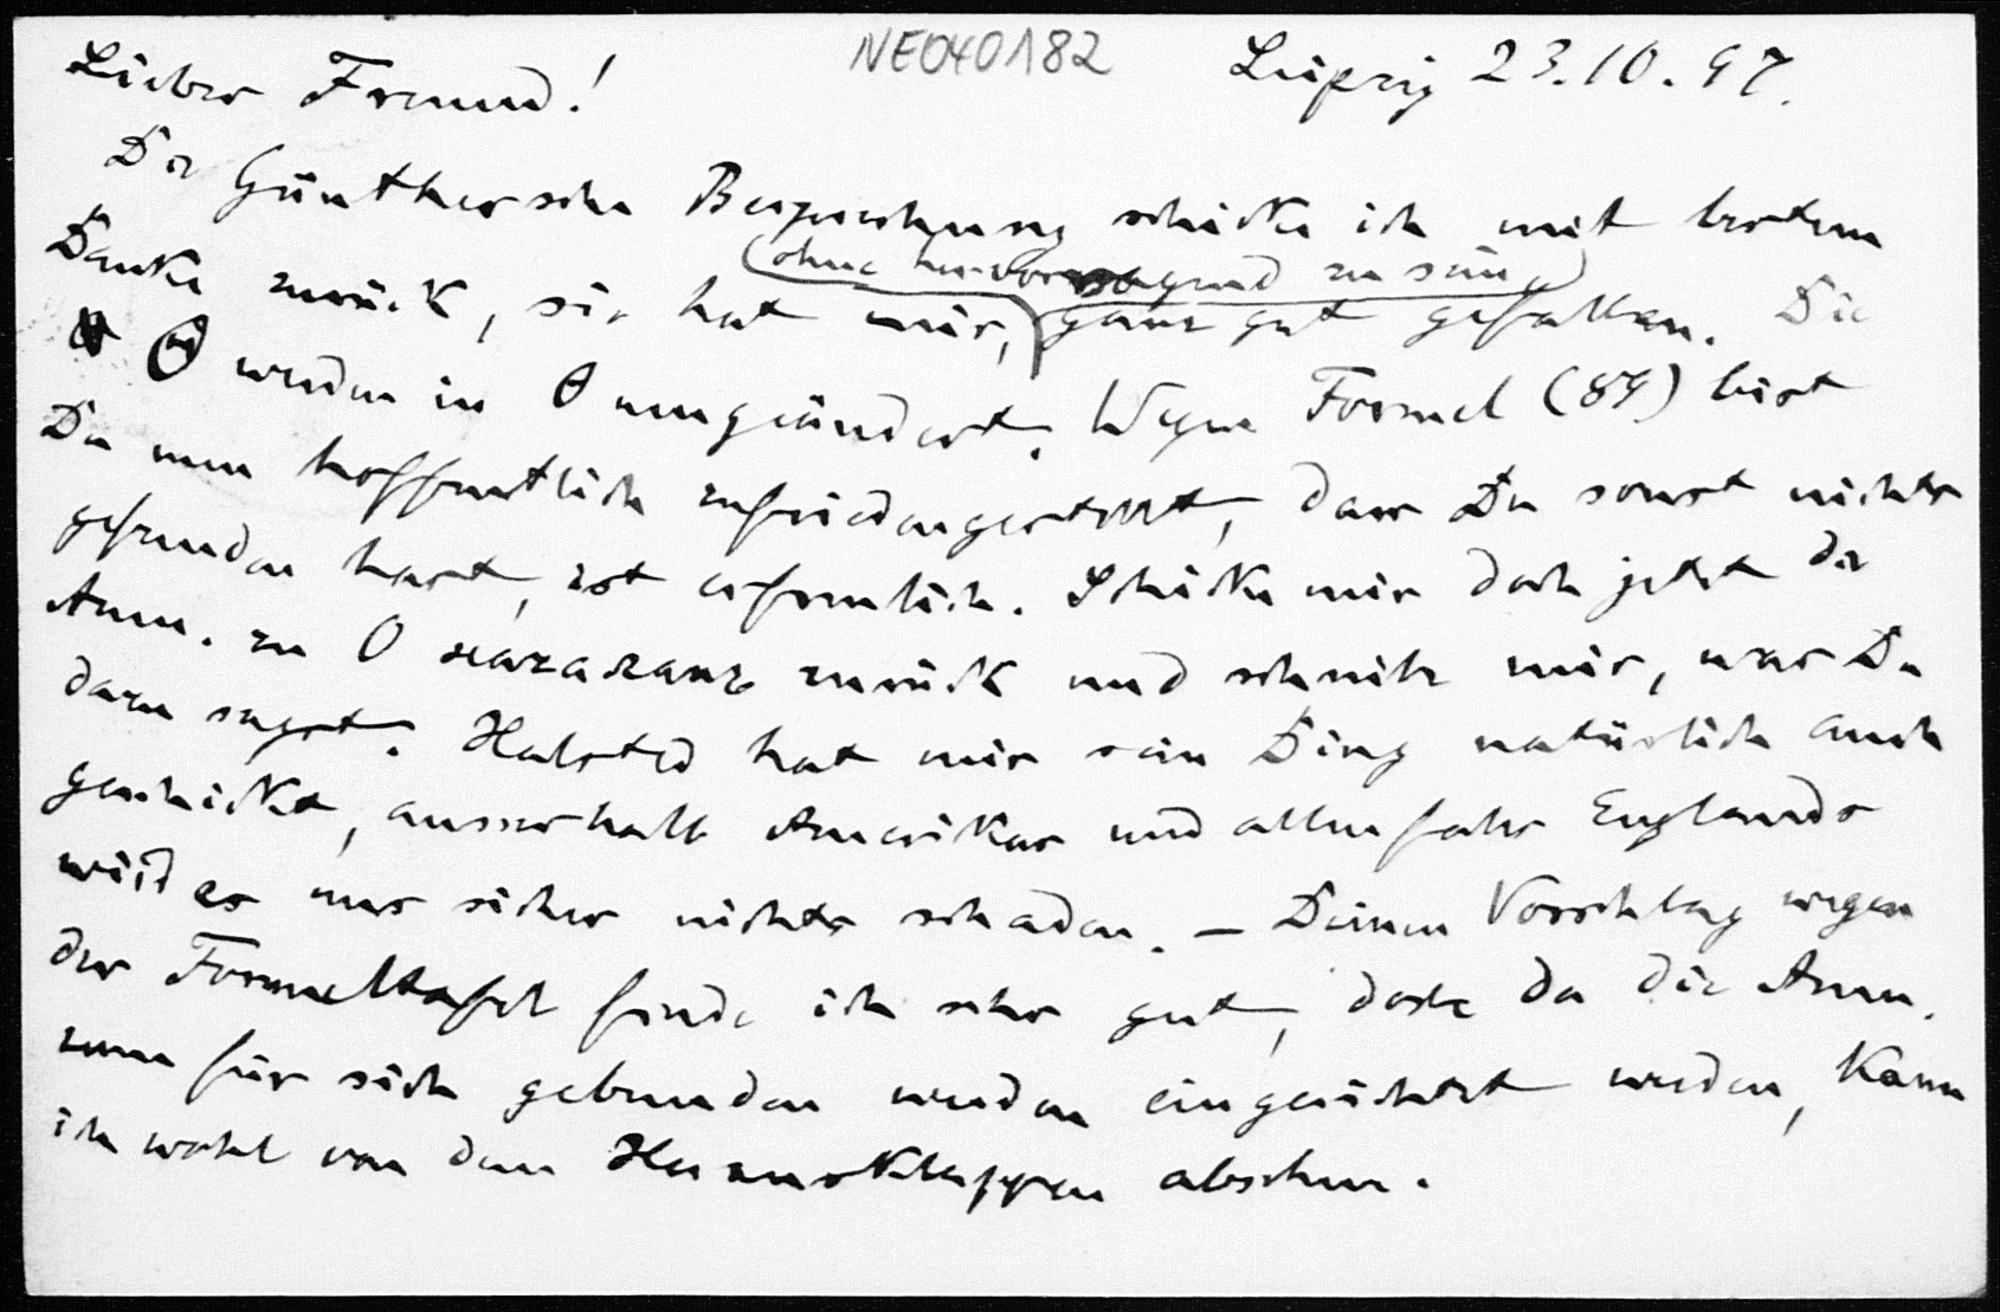 NE040182
Lieber Freund! Leipzig 23.10.97.
Die Günthersche Besprechung schicke ich mit bestem
Danke zurück, sie hat mir, (ohne hervorragend zu sein,) ganz gut gefallen. Die
Θ werden in O umgeändert. Wegen Formel (84) bist
Du nun hoffentlich zufriedengestellt, dass Du sonst nichts
gefunden hast, ist erfreulich. Schicke mir doch jetzt die
Anm. zu О началахъ zurück und schreibe mir, was Du
dazu sagst. Halsted hat mir sein Ding natürlich auch
geschickt, ausserhalb Amerikas und allenfalls Englands
wird es uns sicher nichts schaden. – Deinen Vorschlag wegen
der Formeltafel finde ich sehr gut, doch da die Anm.
zum für sich gebunden werden eingerichtet werden, kann
ich wohl von dem Herausklappen absehen.